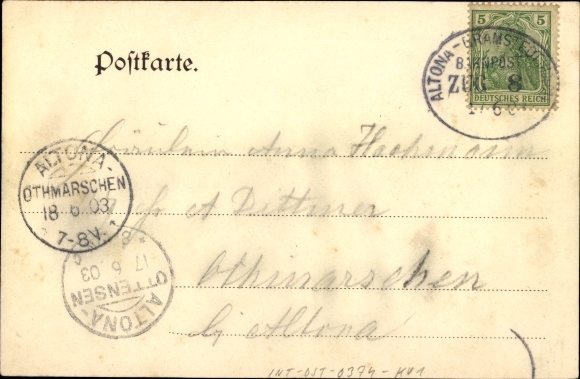 Postkarte.
5 5
DEUTSCHES REICH
ALTONA-GRAMS
BAHNPOST
ZUG 8
Fräulein Anna Hachmann
A Dittmer
Othmarschen
by Altona
ALTONA-
OTHMARSCHEN
18 6 03
7-8V.
17 6 03
ALTONA-
OTTENSEN
INT-OST-0374-HV1